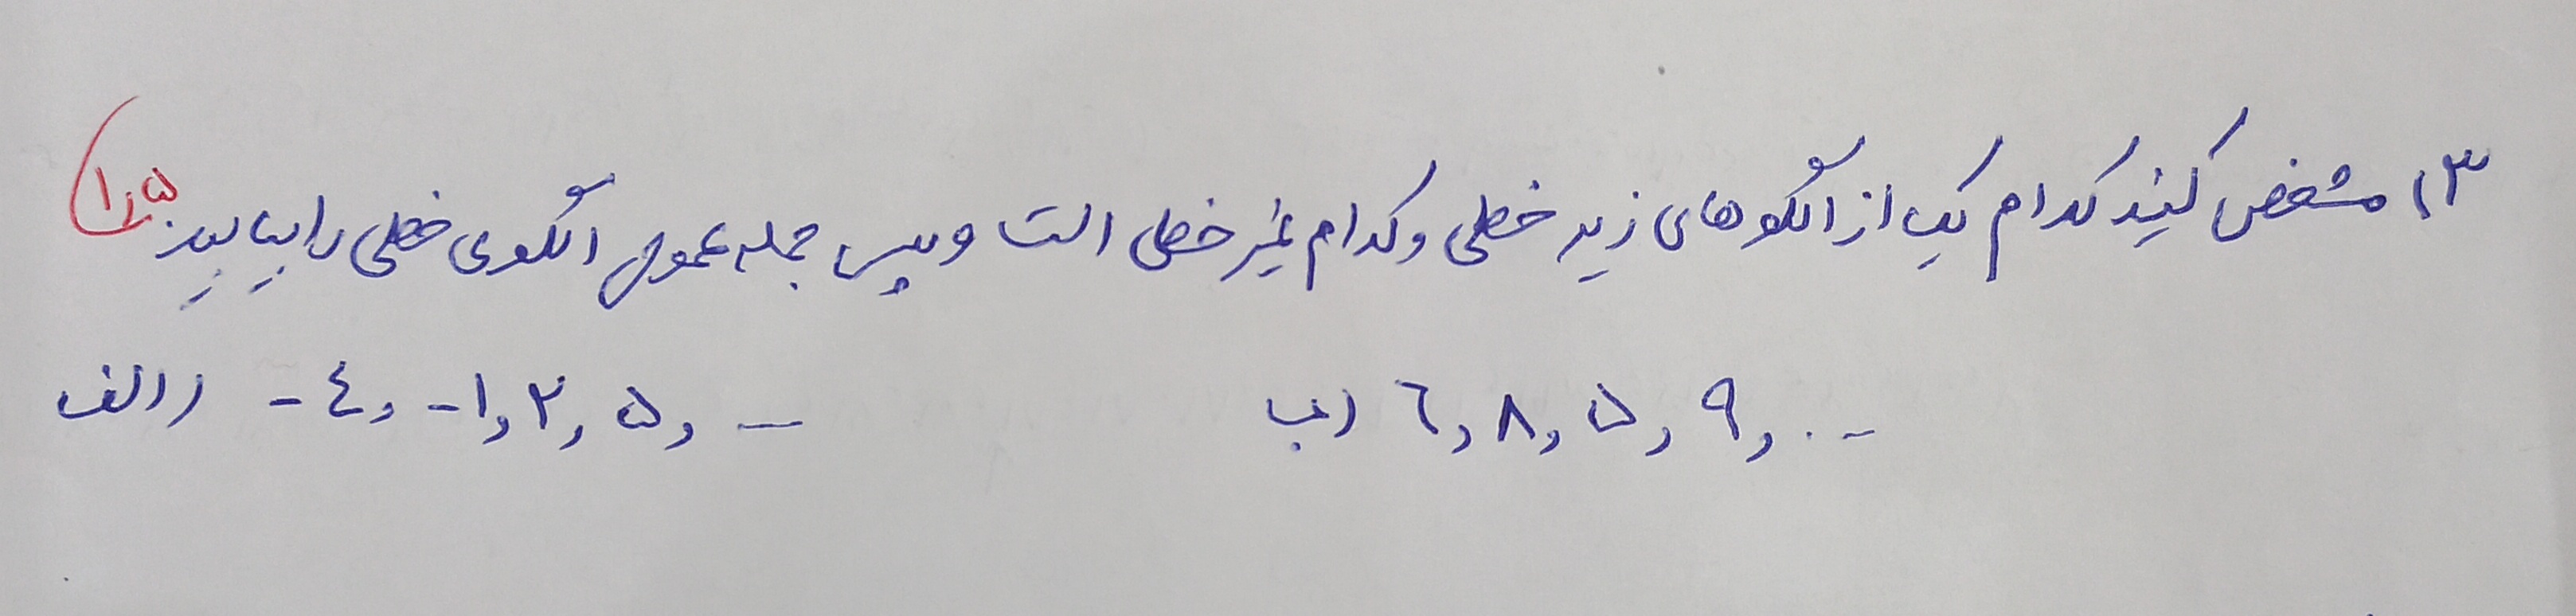 ۱۳) مشخص کنید کدام یک از الگوهای زیر خطی و کدام غیر خطی است و سپس جمله عمومی الگوی خطی را بیابید. (۱/۵
الف) -٤, -۱, ۲, ۵, ...
ب) ٦, ۸, ۵, ۹, ...